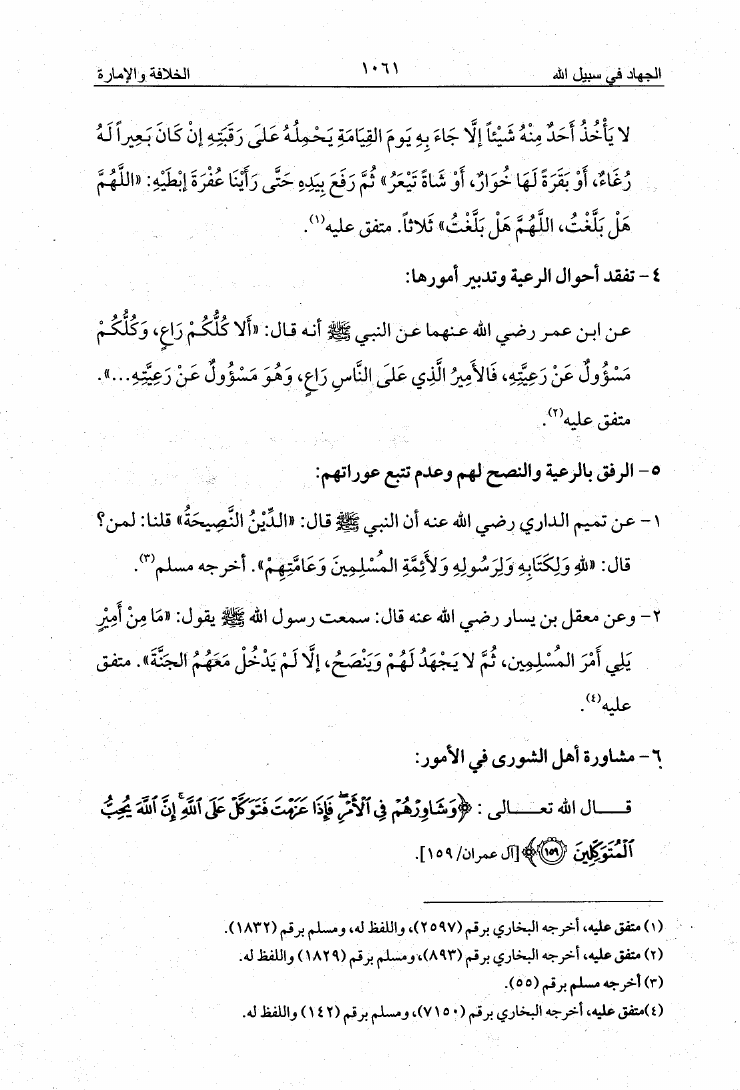 الجهاد في سبيل الله ١٠٦١ الخلافة والإمارة
لا يَأْخُذُ أَحَدٌ مِنْهُ شَيْئاً إلَّا جَاءَ بِهِ يَوْمَ القِيَامَةِ يَحْمِلُهُ عَلَى رَقَبَتِهِ إنْ كَانَ بَعِيراً لَهُ
رُغَاءٌ، أَوْ بَقَرَةً لَهَا خُوَارٌ، أَوْ شَاةً تَيْعَرُ» ثُمَّ رَفَعَ بِيَدِهِ حَتَّى رَأَيْنَا عُفْرَةَ إبْطَيْهِ: «اللَّهُمَّ
هَلْ بَلَّغْتُ، اللَّهُمَّ هَلْ بَلَّغْتُ» ثَلاثاً. متفق عليه(١).
٤- تفقد أحوال الرعية وتدبير أمورها:
عن ابن عمر رضي الله عنهما عن النبي ﷺ أنه قال: «ألا كُلُّكُمْ رَاعٍ، وَكُلُّكُمْ
مَسْؤُولٌ عَنْ رَعِيَّتِهِ، فَالأمِيرُ الَّذِي عَلَى النَّاسِ رَاعٍ، وَهُوَ مَسْؤُولٌ عَنْ رَعِيَّتِهِ...».
متفق عليه(٢).
٥- الرفق بالرعية والنصح لهم وعدم تتبع عوراتهم:
١- عن تميم الداري رضي الله عنه أن النبي ﷺ قال: «الدِّيْنُ النَّصِيحَةُ» قلنا: لمن؟
قال: «للهِ وَلِكتَابِهِ وَلِرَسُولِهِ وَلأئِمَّةِ المُسْلِمِينَ وَعَامَّتِهِمْ». أخرجه مسلم(٣).
٢- وعن معقل بن يسار رضي الله عنه قال: سمعت رسول الله ﷺ يقول: «مَا مِنْ أَمِيْرٍ
يَلِي أَمْرَ المُسْلِمِين، ثُمَّ لا يَجْهَدُ لَهُمْ وَيَنْصَحُ، إلَّا لَمْ يَدْخُلْ مَعَهُمُ الجَنَّةَ». متفق
عليه(٤).
٦- مشاورة أهل الشورى في الأمور:
قـــال الله تعـــالى : ﴿وَشَاوِرْهُمْ فِي ٱلْأَمْرِ ۖ فَإِذَا عَزَمْتَ فَتَوَكَّلْ عَلَى ٱللَّهِ ۚ إِنَّ ٱللَّهَ يُحِبُّ
ٱلْمُتَوَكِّلِينَ ١٥٩﴾ [آل عمران/١٥٩].
(١) متفق عليه، أخرجه البخاري برقم (٢٥٩٧)، واللفظ له، ومسلم برقم (١٨٣٢).
(٢) متفق عليه، أخرجه البخاري برقم (٨٩٣)، ومسلم برقم (١٨٢٩) واللفظ له.
(٣) أخرجه مسلم برقم (٥٥).
(٤)متفق عليه، أخرجه البخاري برقم (٧١٥٠)، ومسلم برقم (١٤٢) واللفظ له.